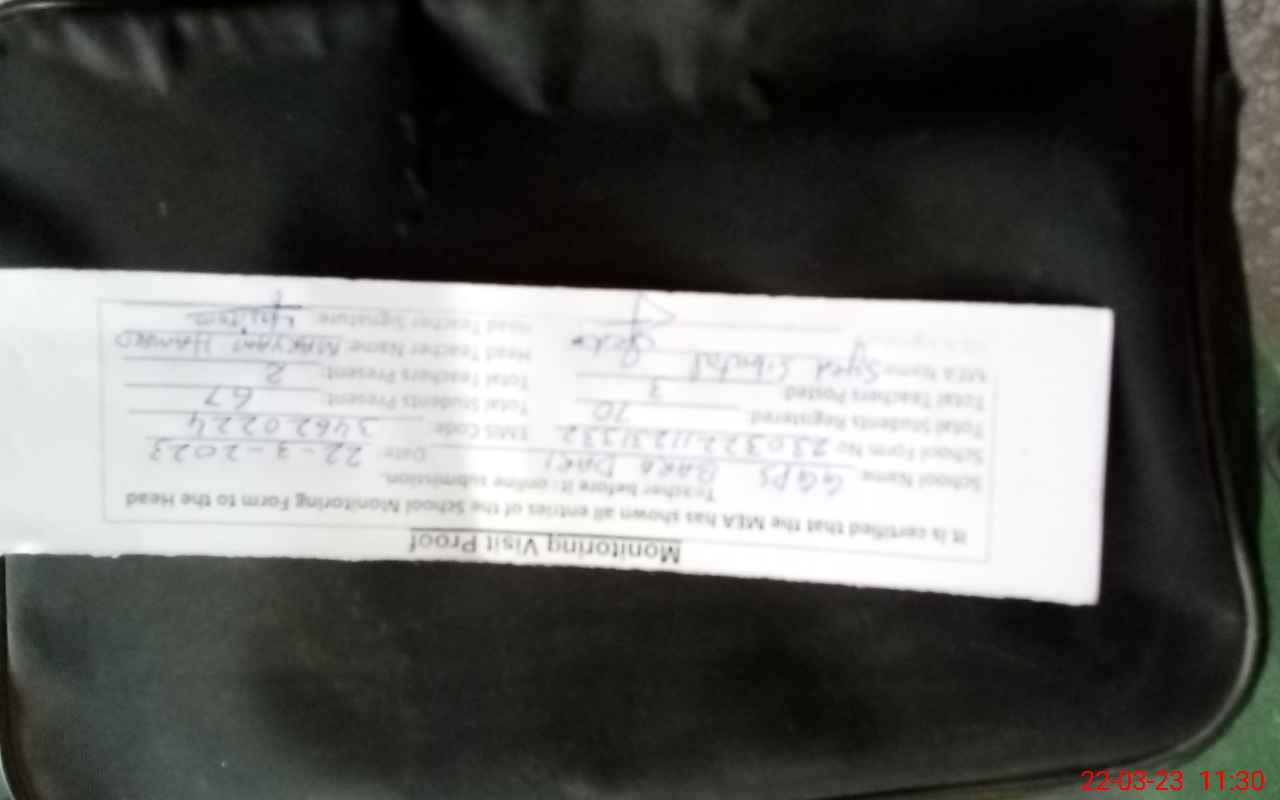 Monitoring Visit Proof
It is certified that the MEA has shown all entries of the School Monitoring Form to the Head
Teacher before it : online submission.
School Name GGPS BARA DARI Date 22-3-2023
School Form No EMIS Code: 34620224
Total Students Registered: 70 Total Students Present: 67
Total Teachers Posted: 3 Total Teachers Present: 2
MEA Name Syed Head Teacher Name
Head Teacher Signature:
22-03-23 11:30